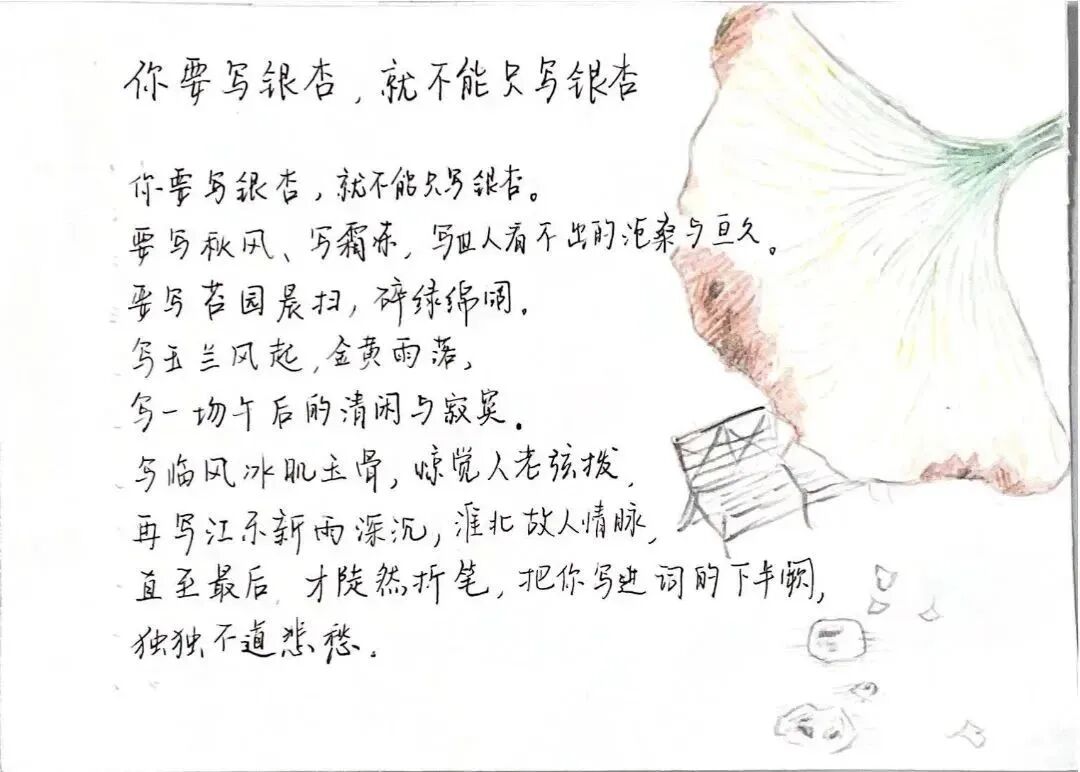 你要写银杏，就不能只写银杏
你要写银杏，就不能只写银杏。
要写秋风、写霜冻，写世人看不出的沧桑与亘久。
要写苔园晨扫，碎绿绵阔。
写玉兰风起，金黄雨落，
写一场午后的清闲与寂寞．
写临风冰肌玉骨，惊觉人老弦拨，
再写江东新雨深沉，淮北故人情脉，
直至最后，才陡然折笔，把你写进词的下半阙，
独独不道悲愁．